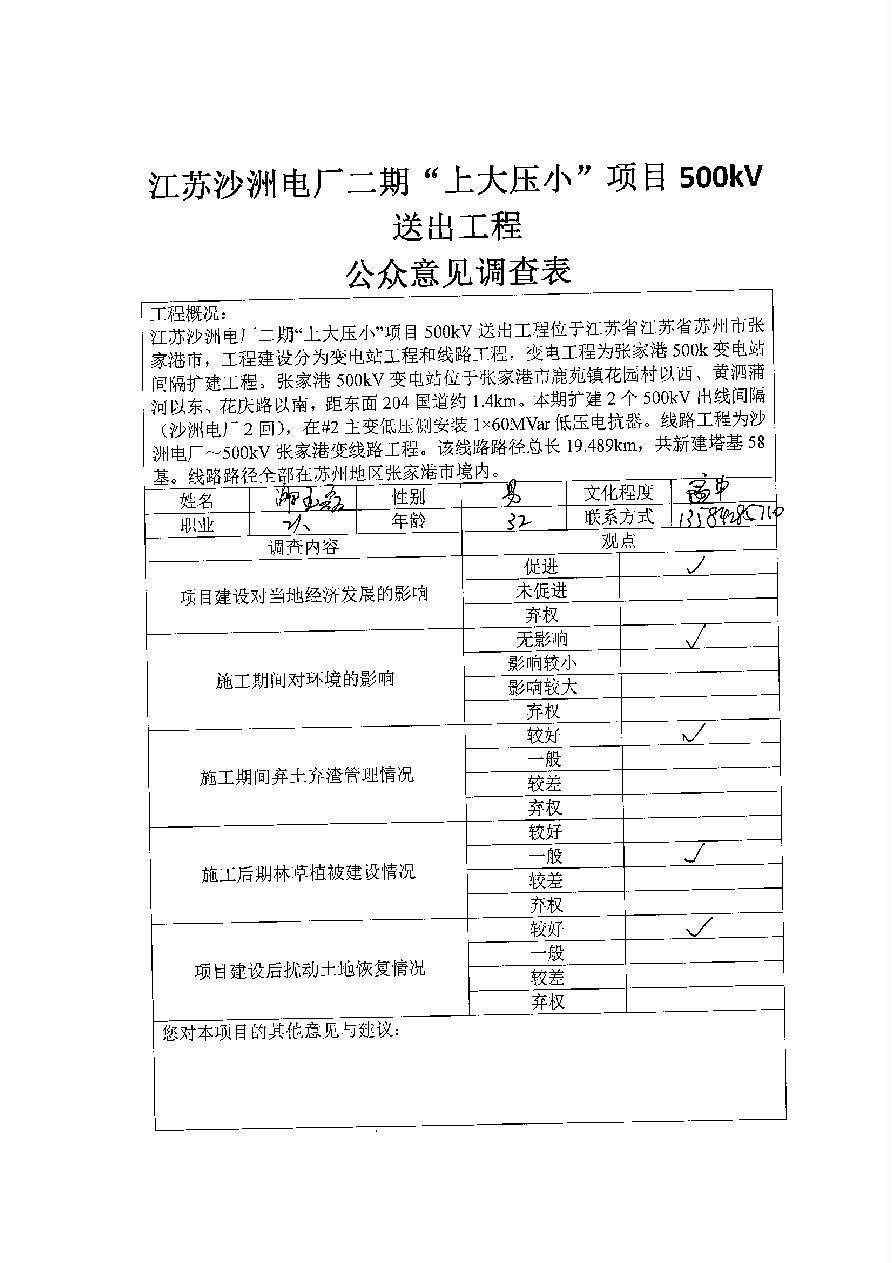 江苏沙洲电厂二期“上大压小”项目 500kV
送出工程
公众意见调查表
工程概况：
江苏沙洲电厂二期“上大压小”项目 500kV 送出工程位于江苏省江苏省苏州市张
家港市，工程建设分为变电站工程和线路工程，变电工程为张家港 500k 变电站
间隔扩建工程。张家港 500kV 变电站位于张家港市鹿苑镇花园村以西、黄泗浦
河以东、花庆路以南，距东面 204 国道约 1.4km。本期扩建 2 个 500kV 出线间隔
（沙洲电厂 2 回），在#2 主变低压侧安装 1×60MVar 低压电抗器。线路工程为沙
洲电厂～500kV 张家港变线路工程。该线路路径总长 19.489km，共新建塔基 58
基。线路路径全部在苏州地区张家港市境内。
姓名 性别 男 文化程度 高中
职业 年龄 32 联系方式
调查内容 观点
项目建设对当地经济发展的影响
促进 ✓
未促进
弃权
施工期间对环境的影响
无影响 ✓
影响较小
影响较大
弃权
施工期间弃土弃渣管理情况
较好 ✓
一般
较差
弃权
施工后期林草植被建设情况
较好
一般 ✓
较差
弃权
项目建设后扰动土地恢复情况
较好 ✓
一般
较差
弃权
您对本项目的其他意见与建议：